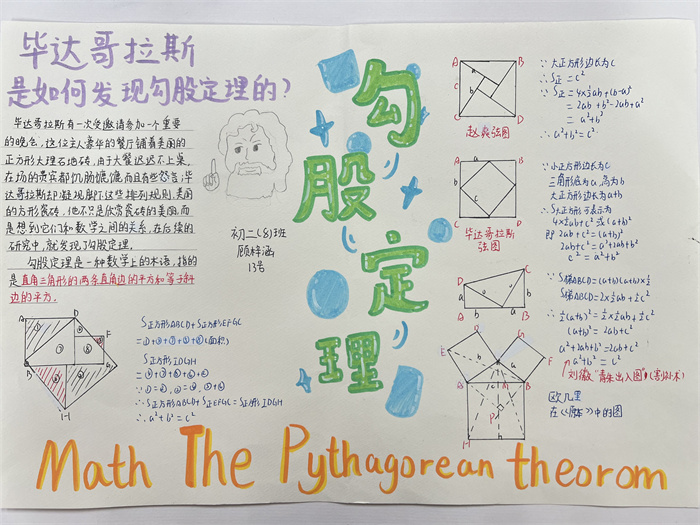 毕达哥拉斯
是如何发现勾股定理的?
毕达哥拉斯有一次受邀请参加一个重要
的晚会,这位主人豪华的餐厅铺着美丽的
正方形大理石地砖,由于大餐迟迟不上桌,
在场的贵宾都饥肠辘辘,而且有些怨言;毕
达哥拉斯却凝视脚下这些排列规则,美丽
的方形瓷砖,他不只是欣赏瓷砖的美丽,而
是想到它们和数学之间的关系,在后续的
研究中,就发现了勾股定理.
勾股定理是一种数学上的术语,指的
是直角三角形的两条直角边的平方和等于斜
边的平方.
初二(8)班
顾梓涵
13号
S正方形ABCD+S正方形EFGC
=①+②+③+④+⑤(面积)
S正方形IDGH
∴S正方形ABCD+S正EFGC=S正方形IDGH
∴a²+b²=c²
勾
股
定
理
A B
C D
赵爽弦图
∵大正方形边长为c
∴S正=c²
∵S正=4×½ab+(b-a)²
=2ab+b²-2ab+a²
=a²+b²
∴a²+b²=c²
毕达哥拉斯
弦图
∵小正方形边长为c
三角形底为a,高为b
大正方形边长为a+b
∴S大正方形可表示为
4×½ab+c²或(a+b)²
即2ab+c²=(a+b)²
2ab+c²=a²+2ab+b²
c²=a²+b²
∵S梯ABCD=(a+b)(a+b)×½
S梯ABCD=2×½ab+½c²
∴½(a+b)²=½×½ab+½c²
(a+b)²=2ab+c²
a²+2ab+b²=2ab+c²
a²+b²=c²
刘徽“青朱出入图”(割补术)
欧几里
在《原本》中的图
Math The Pythagorean theorom